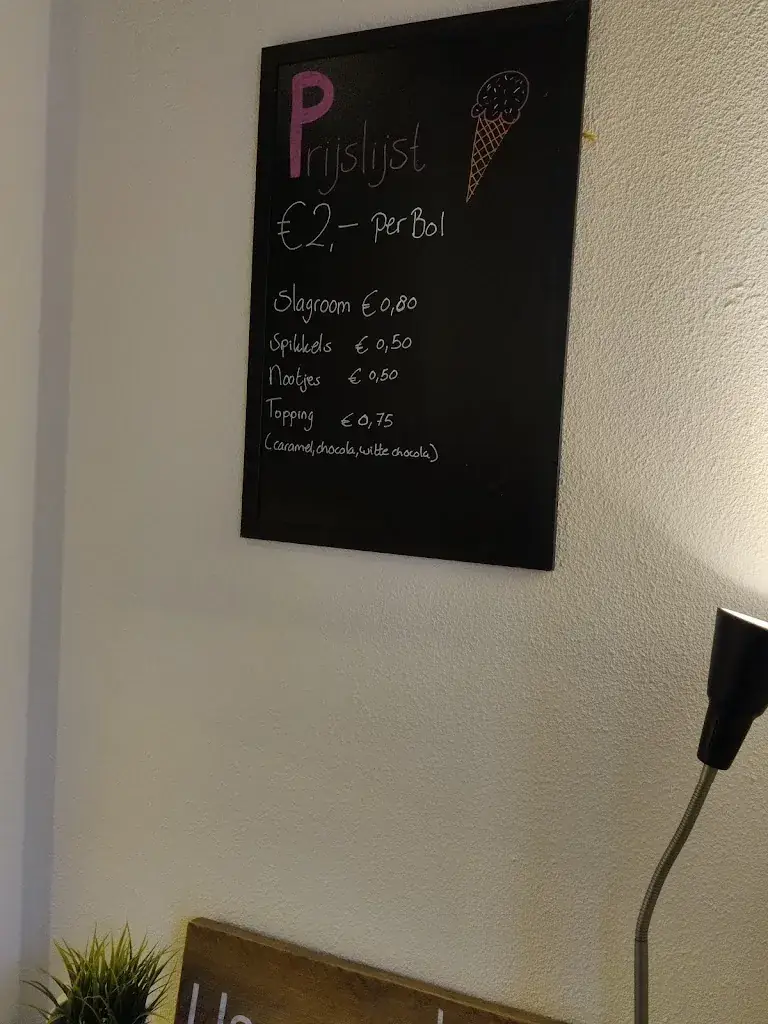 Prijslijst
€2,- per Bol
Slagroom €0,80
Spikkels €0,50
Nootjes €0,50
Topping €0,75
(caramel, chocola, witte chocola)